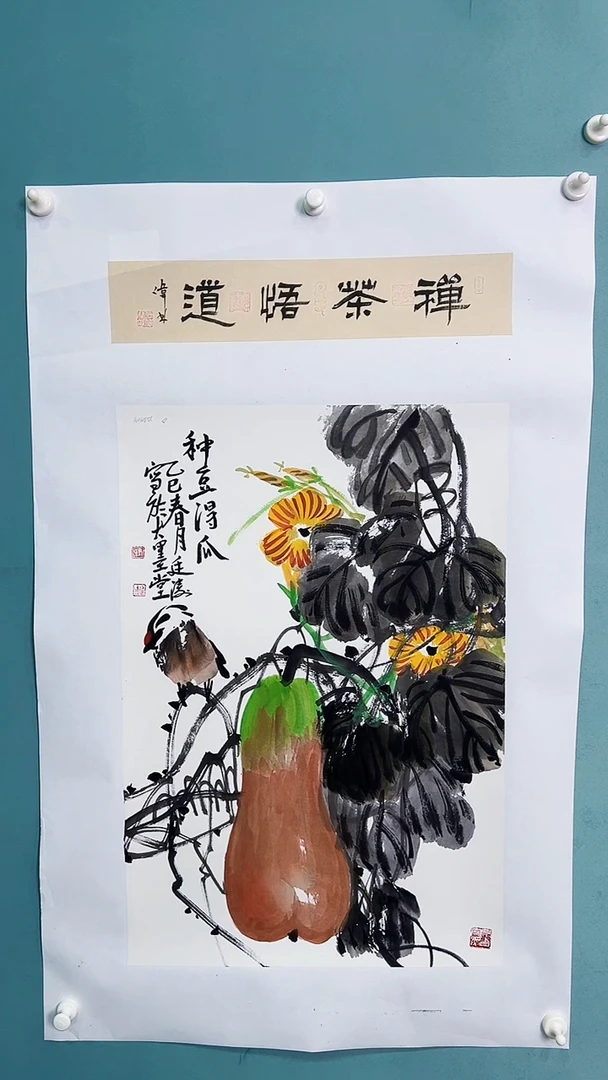 禪茶悟道
种豆得瓜
乙巳春月廷
寫於大墨堂